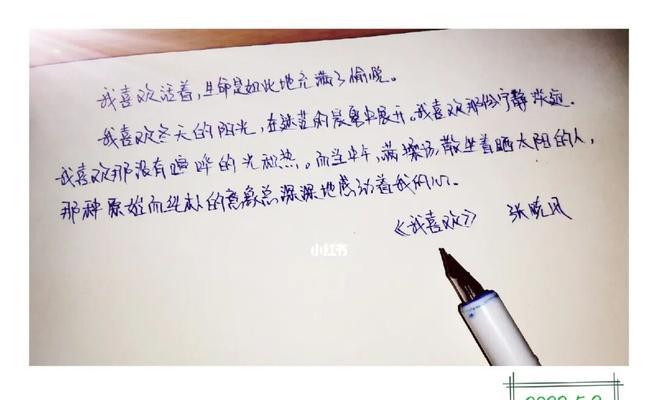 我喜欢活着，生命是如此地充满了愉悦。
我喜欢冬天的阳光，在迷茫的晨雾中展开。我喜欢那份宁静淡远，
我喜欢那没有喧哗的光和热。而当中午，满操场散坐着晒太阳的人，
那种原始而纯朴的意象总深深地感动着我的心。
《我喜欢》 张晓风
小红书